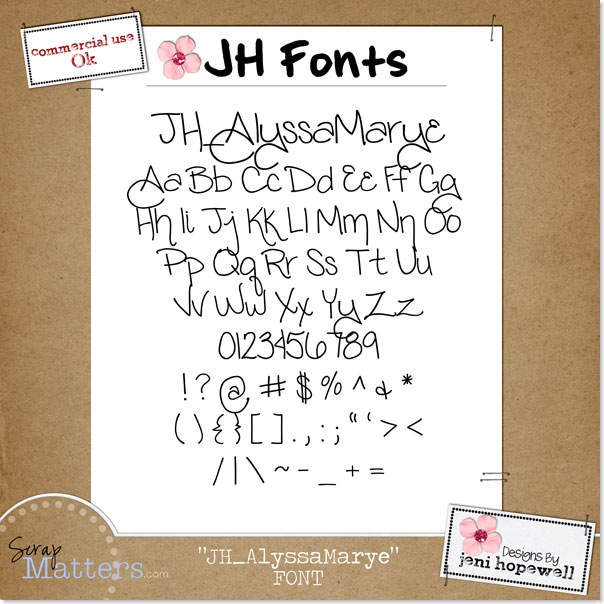 commercial use
Ok
JH Fonts
JH_AlyssaMarye
Aa Bb Cc Dd Ee Ff Gg
Hh Ii Jj KK Ll Mm Nn Oo
Pp Qq Rr Ss Tt Uu
Vv Ww Xx Yy Zz
0123456789
! ? @ # $ % ^ & *
( ) { } [ ] . , : ; " ' > <
/ | \ ~ - _ + =
Scrap
Matters.com
"JH_AlyssaMarye"
FONT
Designs By
jeni hopewell